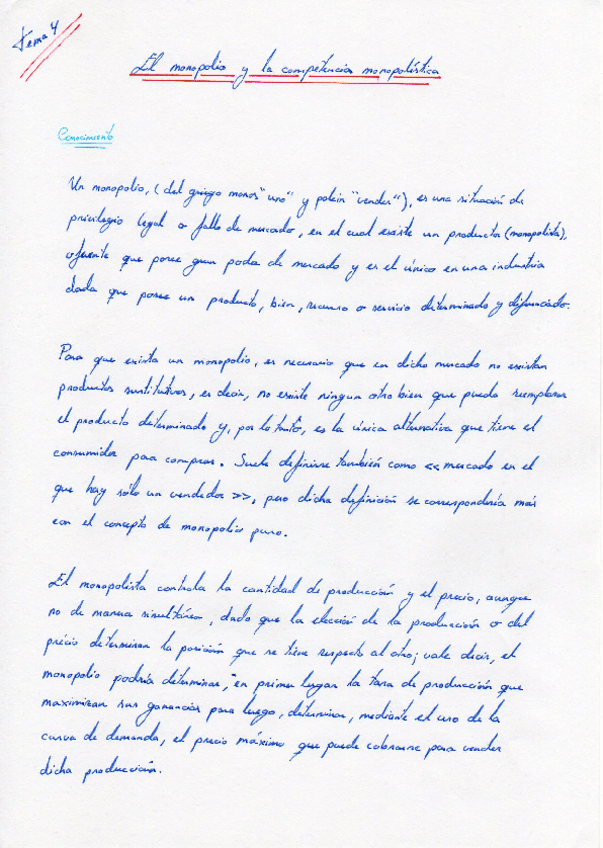 Tema 4
El monopolio y la competencia monopolística
Conocimiento
Un monopolio, (del griego monos "uno" y polein "vender"), es una situación de
privilegio legal o fallo de mercado, en el cual existe un productor (monopolista),
oferente que posee gran poder de mercado y es el único en una industria
dada que posee un producto, bien, recurso o servicio determinado y diferenciado.
Para que exista un monopolio, es necesario que en dicho mercado no existan
productos sustitutivos, es decir, no existe ningun otro bien que pueda reemplazar
el producto determinado y, por lo tanto, es la única alternativa que tiene el
consumidor para comprar. Suele definirse también como << mercado en el
que hay sólo un vendedor >>, pero dicha definición se correspondería más
con el concepto de monopolio puro.
El monopolista controla la cantidad de producción y el precio, aunque
no de manera simultánea, dado que la elección de la producción o del
précio determinan la posición que se tiene respecto al otro; vale decir, el
monopolio podría determinar, en primer lugar la tasa de producción que
maximizan sus ganancias para luego, determinar, mediante el uso de la
curva de demanda, el precio máximo que puede cobrarse para vender
dicha producción.